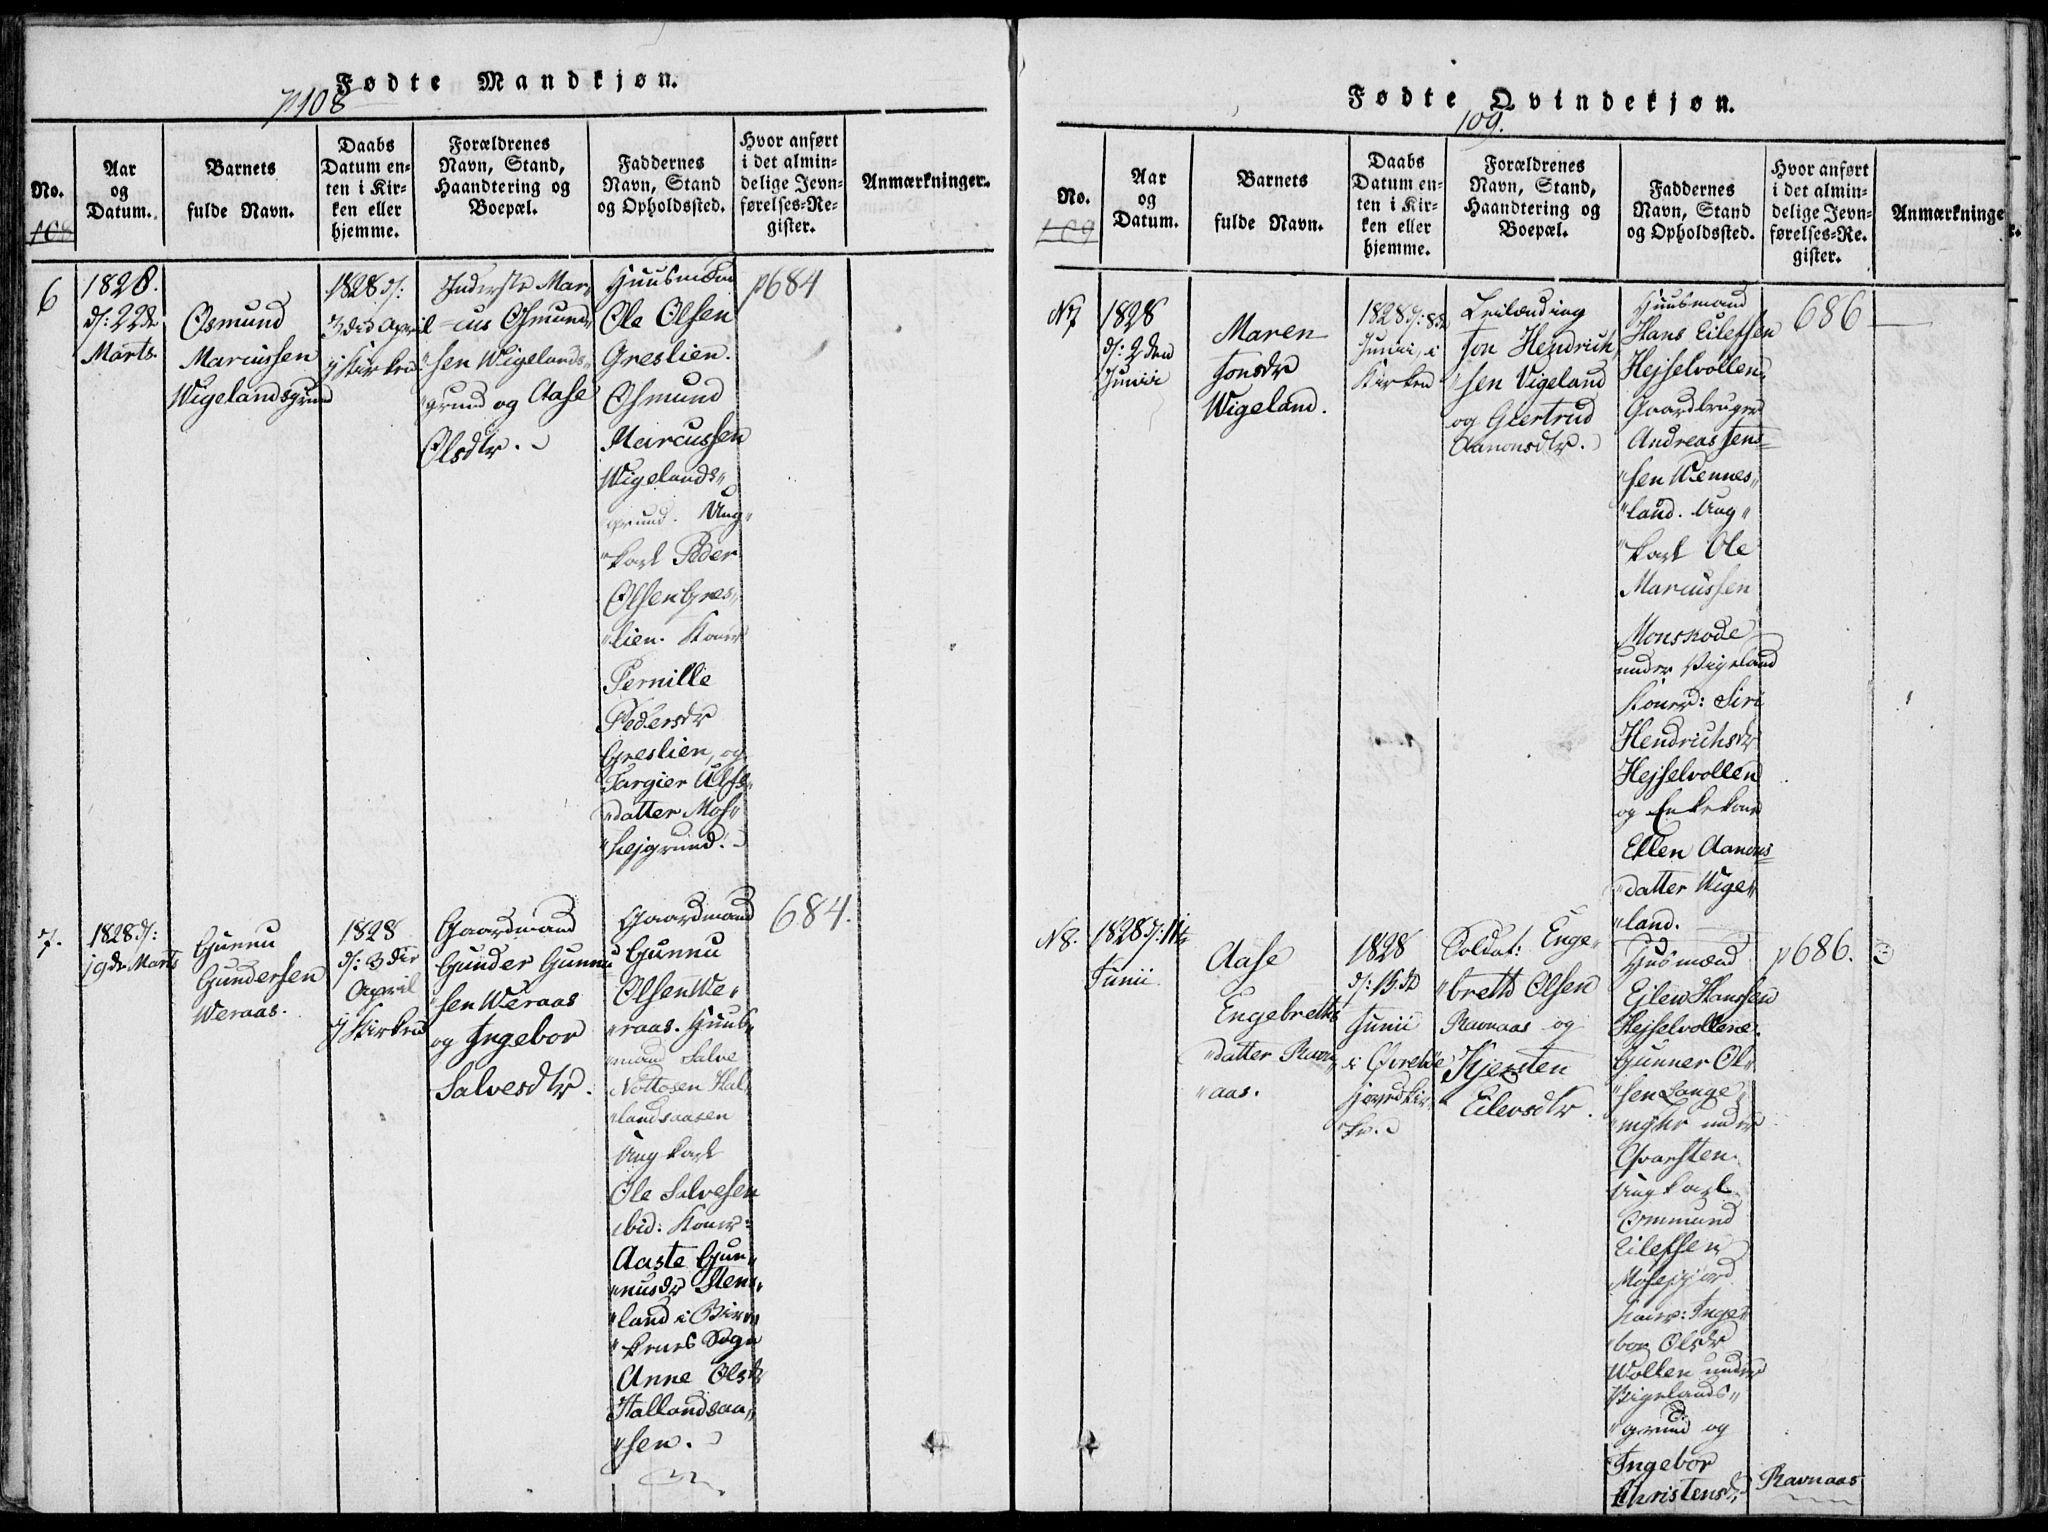 Fødte Mandkjøn.
p 108
No.
108
Aar
og
Datum.
Barnets
fulde Navn.
Daabs
Datum en-
ten i Kir-
ken eller
hjemme.
Forældrenes
Navn, Stand,
Haandtering og
Boepæl.
Faddernes
Navn, Stand
og Opholdssted.
Hvor anført
i det almin-
delige Jevn-
førelses-Re-
gister.
Anmærkninger.
6
1828.
d: 22de
Marts.
Osmund
Marcussen
Wigelandsgrund
1828 d:
3die April
i Kirken
Inderste Mar-
=cus Osmund
sen Wigelands-
"grund og Aase
Olsdtr.
Huusmænd
Ole Olsen
Greslien.
Osmund
Marcussen
Wigelands"
grund. Ung"
"karl Peder
Olsen Gres"
"lien. Koner
Pernille
Pedersdr
Greslien, og
Targier Ulfs"
"datter Mos"
"hejgrund.
p 684
7.
1828 d:
19de Marts
Gunnu
Gundersen
Weraas.
1828
d: 3die
April
i Kirken
Gaardmand
Gunder Gunnu
"sen Weraas
og Ingebor
Salvesdtr.
Gaardmand
Gunnu
Olsen We"
"raas. Huus"
"mand Salve
Nottosen Hal"
"landsaasen
Ungkarl
Ole Salvesen
ibid: Koner:
Aaste Gun"
"nusdr Stens"
"land i Birre"
"kenes Sogn
Anne Olsdr
Hallandsaa"
"sen.
684.
Fødte Qvindekjøn.
109.
No.
109
Aar
og
Datum.
Barnets
fulde Navn.
Daabs
Datum en-
ten i Kir-
ken eller
hjemme.
Forældrenes
Navn, Stand,
Haandtering og
Boepæl.
Faddernes
Navn, Stand
og Opholdssted.
Hvor anført
i det almin-
delige Jevn-
førelses-Re-
gister.
Anmærkninge
N 7
1828
d: 2den
Junii
Maren
Jonsdr
Wigeland.
1828 d: 8de
Junii, i
Kirken
Leilænding
Jon Hendrich
"sen Vigeland
og Giertrud
Aanonsdtr.
Huusmand
Hans Eilefsen
Hejselvollen
Gaardbruger
Andreas Jens=
"sen Wennes"
"land. Ung"
"karl Ole
Marcussen
Monsrode
under Vigeland
Koner: Siri
Hendrichsdr
Hejselvollen
og Enkekone
Ellen Aanons
"datter Wige"
"land.
686
N 8.
1828 d: 11te
Junii
Aase
Engebreths
"datter Ravn"
"aas.
1828
d: 15de
Junii
i Øvrebøe
hovedkir"
ke.
Soldat: Enge"
"breth Olsen
Ravnaas og
Kjersten
Eilevsdtr.
Huusmænd
Ejlev Hanssen
Hejselvollene.
Gunner Ol"
"sen Lange"
"myhr under
Qvarsten.
Ungkarl
Ormmund
Eilefsen
Mosefjord
Koner: Inge"
"bor Olsdr
Wollen under
Vigelands"
"grund og
Ingebor
Christensdr
Ravnaas
p 686.